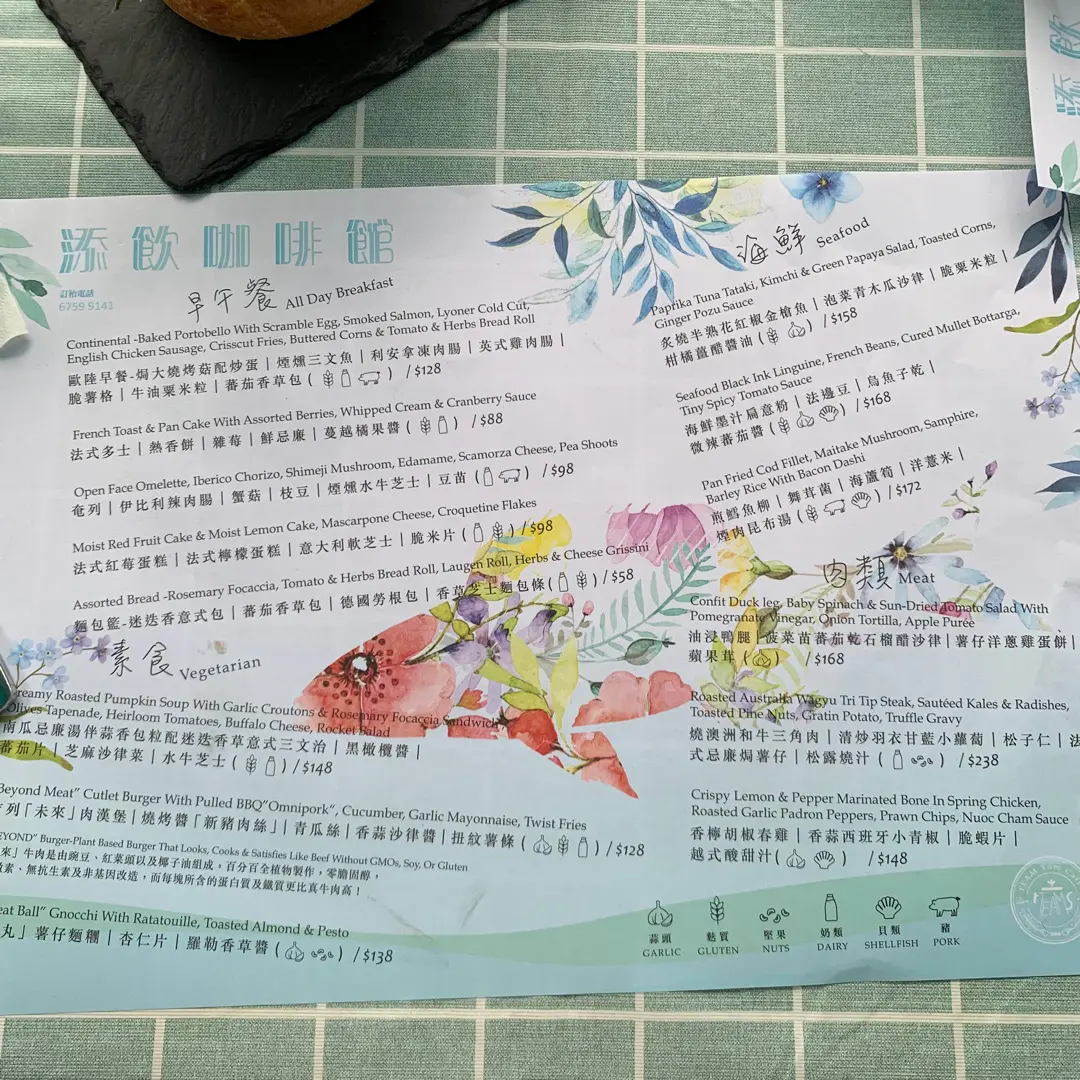 添飲咖啡館
訂枱電話
6759 5143
早午餐 All Day Breakfast
Continental -Baked Portobello With Scramble Egg, Smoked Salmon, Lyoner Cold Cut,
English Chicken Sausage, Crisscut Fries, Buttered Corns & Tomato & Herbs Bread Roll
歐陸早餐-焗大燒烤菇配炒蛋 | 煙燻三文魚 | 利安拿凍肉腸 | 英式雞肉腸 |
脆薯格 | 牛油粟米粒 | 蕃茄香草包 ( ) / $128
French Toast & Pan Cake With Assorted Berries, Whipped Cream & Cranberry Sauce
法式多士 | 熱香餅 | 雜莓 | 鮮忌廉 | 蔓越橘果醬 ( ) / $88
Open Face Omelette, Iberico Chorizo, Shimeji Mushroom, Edamame, Scamorza Cheese, Pea Shoots
奄列 | 伊比利辣肉腸 | 蟹菇 | 枝豆 | 煙燻水牛芝士 | 豆苗 ( ) / $98
Moist Red Fruit Cake & Moist Lemon Cake, Mascarpone Cheese, Croquetine Flakes
法式紅莓蛋糕 | 法式檸檬蛋糕 | 意大利軟芝士 | 脆米片 ( ) / $98
Assorted Bread -Rosemary Focaccia, Tomato & Herbs Bread Roll, Laugen Roll, Herbs & Cheese Grissini
麵包籃-迷迭香意式包 | 蕃茄香草包 | 德國勞根包 | 香草芝士麵包條 ( ) / $58
素食 Vegetarian
reamy Roasted Pumpkin Soup With Garlic Croutons & Rosemary Focaccia Sandwich
Olives Tapenade, Heirloom Tomatoes, Buffalo Cheese, Rocket Salad
南瓜忌廉湯伴蒜香包粒配迷迭香草意式三文治 | 黑橄欖醬 |
蕃茄片 | 芝麻沙律菜 | 水牛芝士 ( ) / $148
Beyond Meat" Cutlet Burger With Pulled BBQ"Omnipork", Cucumber, Garlic Mayonnaise, Twist Fries
列「未來」肉漢堡 | 燒烤醬「新豬肉絲」 | 青瓜絲 | 香蒜沙律醬 | 扭紋薯條 ( ) / $128
EYOND" Burger-Plant Based Burger That Looks, Cooks & Satisfies Like Beef Without GMOs, Soy, Or Gluten
來」牛肉是由豌豆、紅菜頭以及椰子油組成，百分百全植物製作，零膽固醇，
激素、無抗生素及非基因改造，而每塊所含的蛋白質及鐵質更比真牛肉高！
eat Ball" Gnocchi With Ratatouille, Toasted Almond & Pesto
丸」薯仔麵糰 | 杏仁片 | 羅勒香草醬 ( ) / $138
海鮮 Seafood
Paprika Tuna Tataki, Kimchi & Green Papaya Salad, Toasted Corns,
Ginger Pozu Sauce
炙燒半熟花紅椒金槍魚 | 泡菜青木瓜沙律 | 脆粟米粒 |
柑橘薑醋醬油 ( ) / $158
Seafood Black Ink Linguine, French Beans, Cured Mullet Bottarga,
Tiny Spicy Tomato Sauce
海鮮墨汁扁意粉 | 法邊豆 | 烏魚子乾 |
微辣蕃茄醬 ( ) / $168
Pan Fried Cod Fillet, Maitake Mushroom, Samphire,
Barley Rice With Bacon Dashi
煎鱈魚柳 | 舞茸菌 | 海蘆筍 | 洋薏米 |
煙肉昆布湯 ( ) / $172
肉類 Meat
Confit Duck leg, Baby Spinach & Sun-Dried Tomato Salad With
Pomegranate Vinegar, Onion Tortilla, Apple Purée
油浸鴨腿 | 菠菜苗蕃茄乾石榴醋沙律 | 薯仔洋蔥雞蛋餅 |
蘋果茸 ( ) / $168
Roasted Australia Wagyu Tri Tip Steak, Sautéed Kales & Radishes,
Toasted Pine Nuts, Gratin Potato, Truffle Gravy
燒澳洲和牛三角肉 | 清炒羽衣甘藍小蘿蔔 | 松子仁 | 法
式忌廉焗薯仔 | 松露燒汁 ( ) / $238
Crispy Lemon & Pepper Marinated Bone In Spring Chicken,
Roasted Garlic Padron Peppers, Prawn Chips, Nuoc Cham Sauce
香檸胡椒春雞 | 香蒜西班牙小青椒 | 脆蝦片 |
越式酸甜汁 ( ) / $148
蒜頭 麩質 堅果 奶類 貝類 豬
GARLIC GLUTEN NUTS DAIRY SHELLFISH PORK
添飲